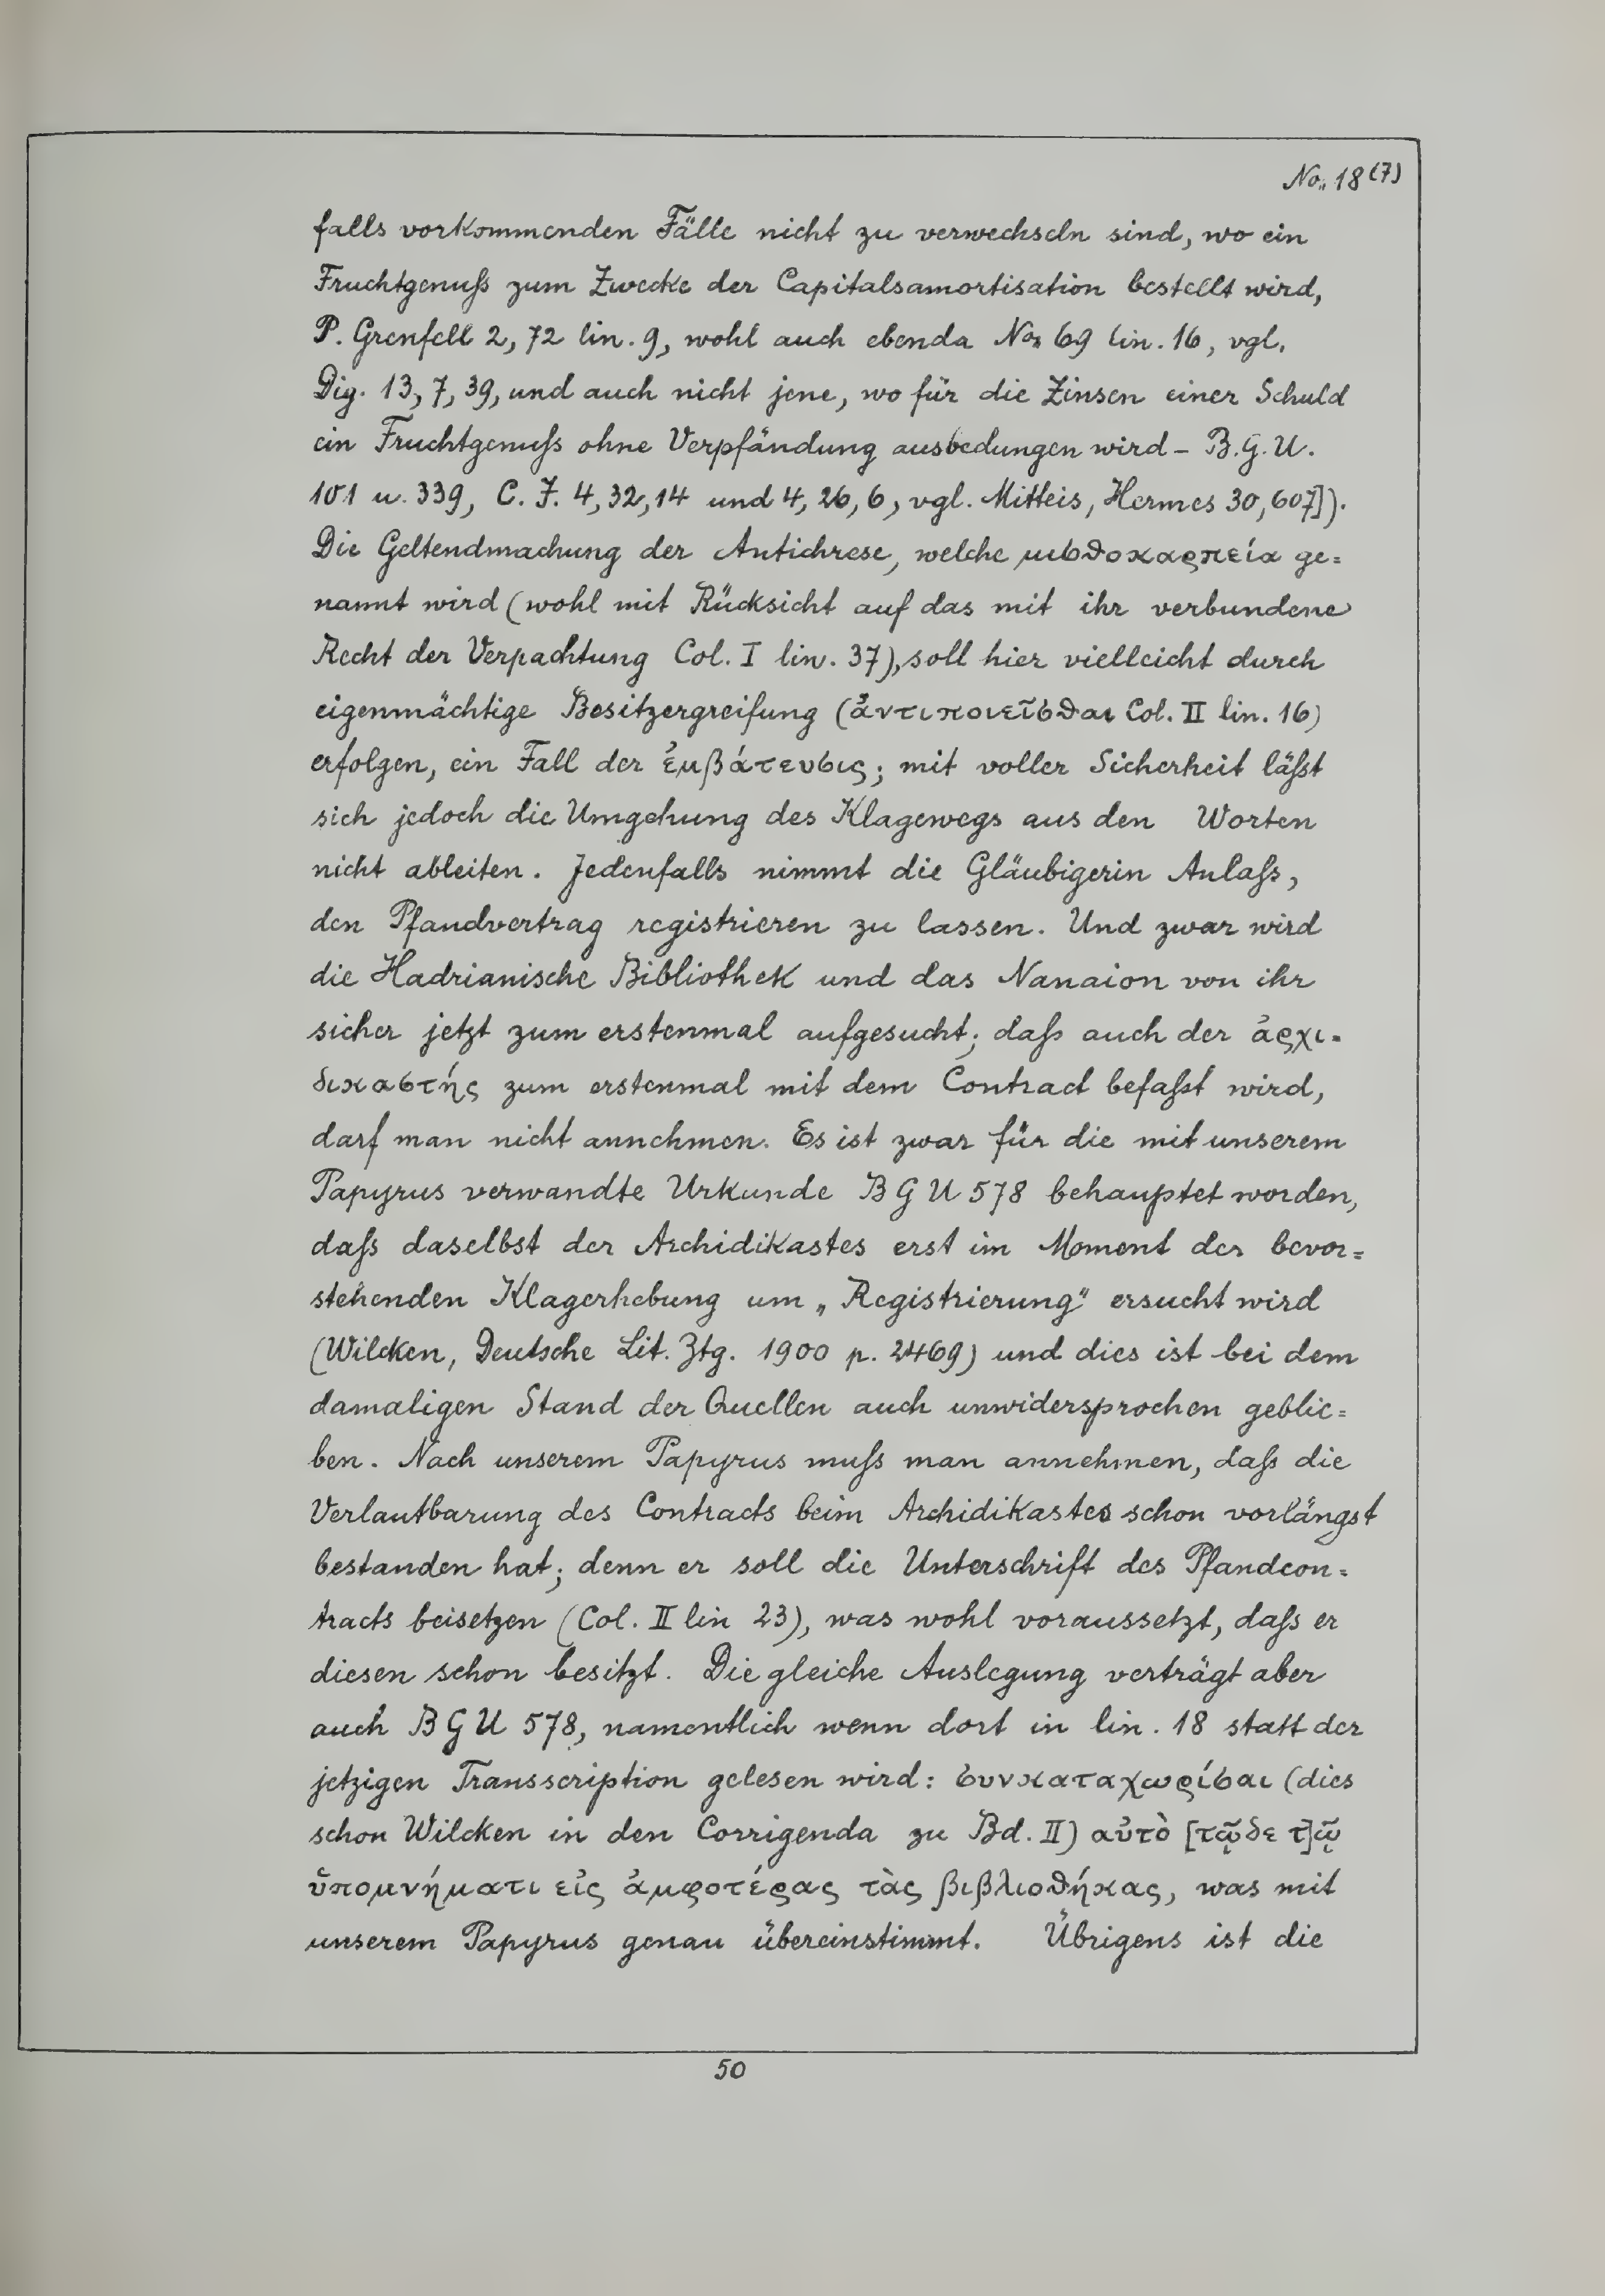 No. 18 (7)
falls vorkommenden Fälle nicht zu verwechseln sind, wo ein
Fruchtgenuſs zum Zwecke der Capitalsamortisation bestellt wird,
P. Grenfell 2, 72 lin. 9, wohl auch ebenda No. 69 lin. 16, vgl.
Dig. 13, 7, 39, und auch nicht jene, wo für die Zinsen einer Schuld
ein Fruchtgenuſs ohne Verpfändung ausbedungen wird – B.G.U.
101 u. 339, C. J. 4, 32, 14 und 4, 26, 6, vgl. Mitteis, Hermes 30, 607]).
Die Geltendmachung der Antichrese, welche μισθοκαρπεία ge=
nannt wird (wohl mit Rücksicht auf das mit ihr verbundene
Recht der Verpachtung Col. I lin. 37), soll hier vielleicht durch
eigenmächtige Besitzergreifung (ἀντιποιεῖσθαι Col. II lin. 16)
erfolgen, ein Fall der ἐμβάτευσις; mit voller Sicherheit läſst
sich jedoch die Umgehung des Klagewegs aus den Worten
nicht ableiten. Jedenfalls nimmt die Gläubigerin Anlaſs,
den Pfandvertrag registrieren zu lassen. Und zwar wird
die Hadrianische Bibliothek und das Nanaion von ihr
sicher jetzt zum erstenmal aufgesucht; daſs auch der ἀρχι-
δικαστής zum erstenmal mit dem Contract befaſst wird,
darf man nicht annehmen. Es ist zwar für die mit unserem
Papyrus verwandte Urkunde B G U 578 behauptet worden,
daſs daselbst der Archidikastes erst im Moment der bevor=
stehenden Klagerhebung um „Registrierung" ersucht wird
(Wilcken, Deutsche Lit. Ztg. 1900 p. 2469) und dies ist bei dem
damaligen Stand der Quellen auch unwidersprochen geblie=
ben. Nach unserem Papyrus muſs man annehmen, daſs die
Verlautbarung des Contracts beim Archidikastes schon vorlängst
bestanden hat; denn er soll die Unterschrift des Pfandcon=
tracts beisetzen (Col. II lin 23), was wohl voraussetzt, daſs er
diesen schon besitzt. Die gleiche Auslegung verträgt aber
auch B G U 578, namentlich wenn dort in lin. 18 statt der
jetzigen Transscription gelesen wird: συνκαταχωρίσαι (dies
schon Wilcken in den Corrigenda zu Bd. II) αὐτὸ [τῷδε τ]ῷ
ὑπομνήματι εἰς ἀμφοτέρας τὰς βιβλιοθήκας, was mit
unserem Papyrus genau übereinstimmt. Übrigens ist die
50